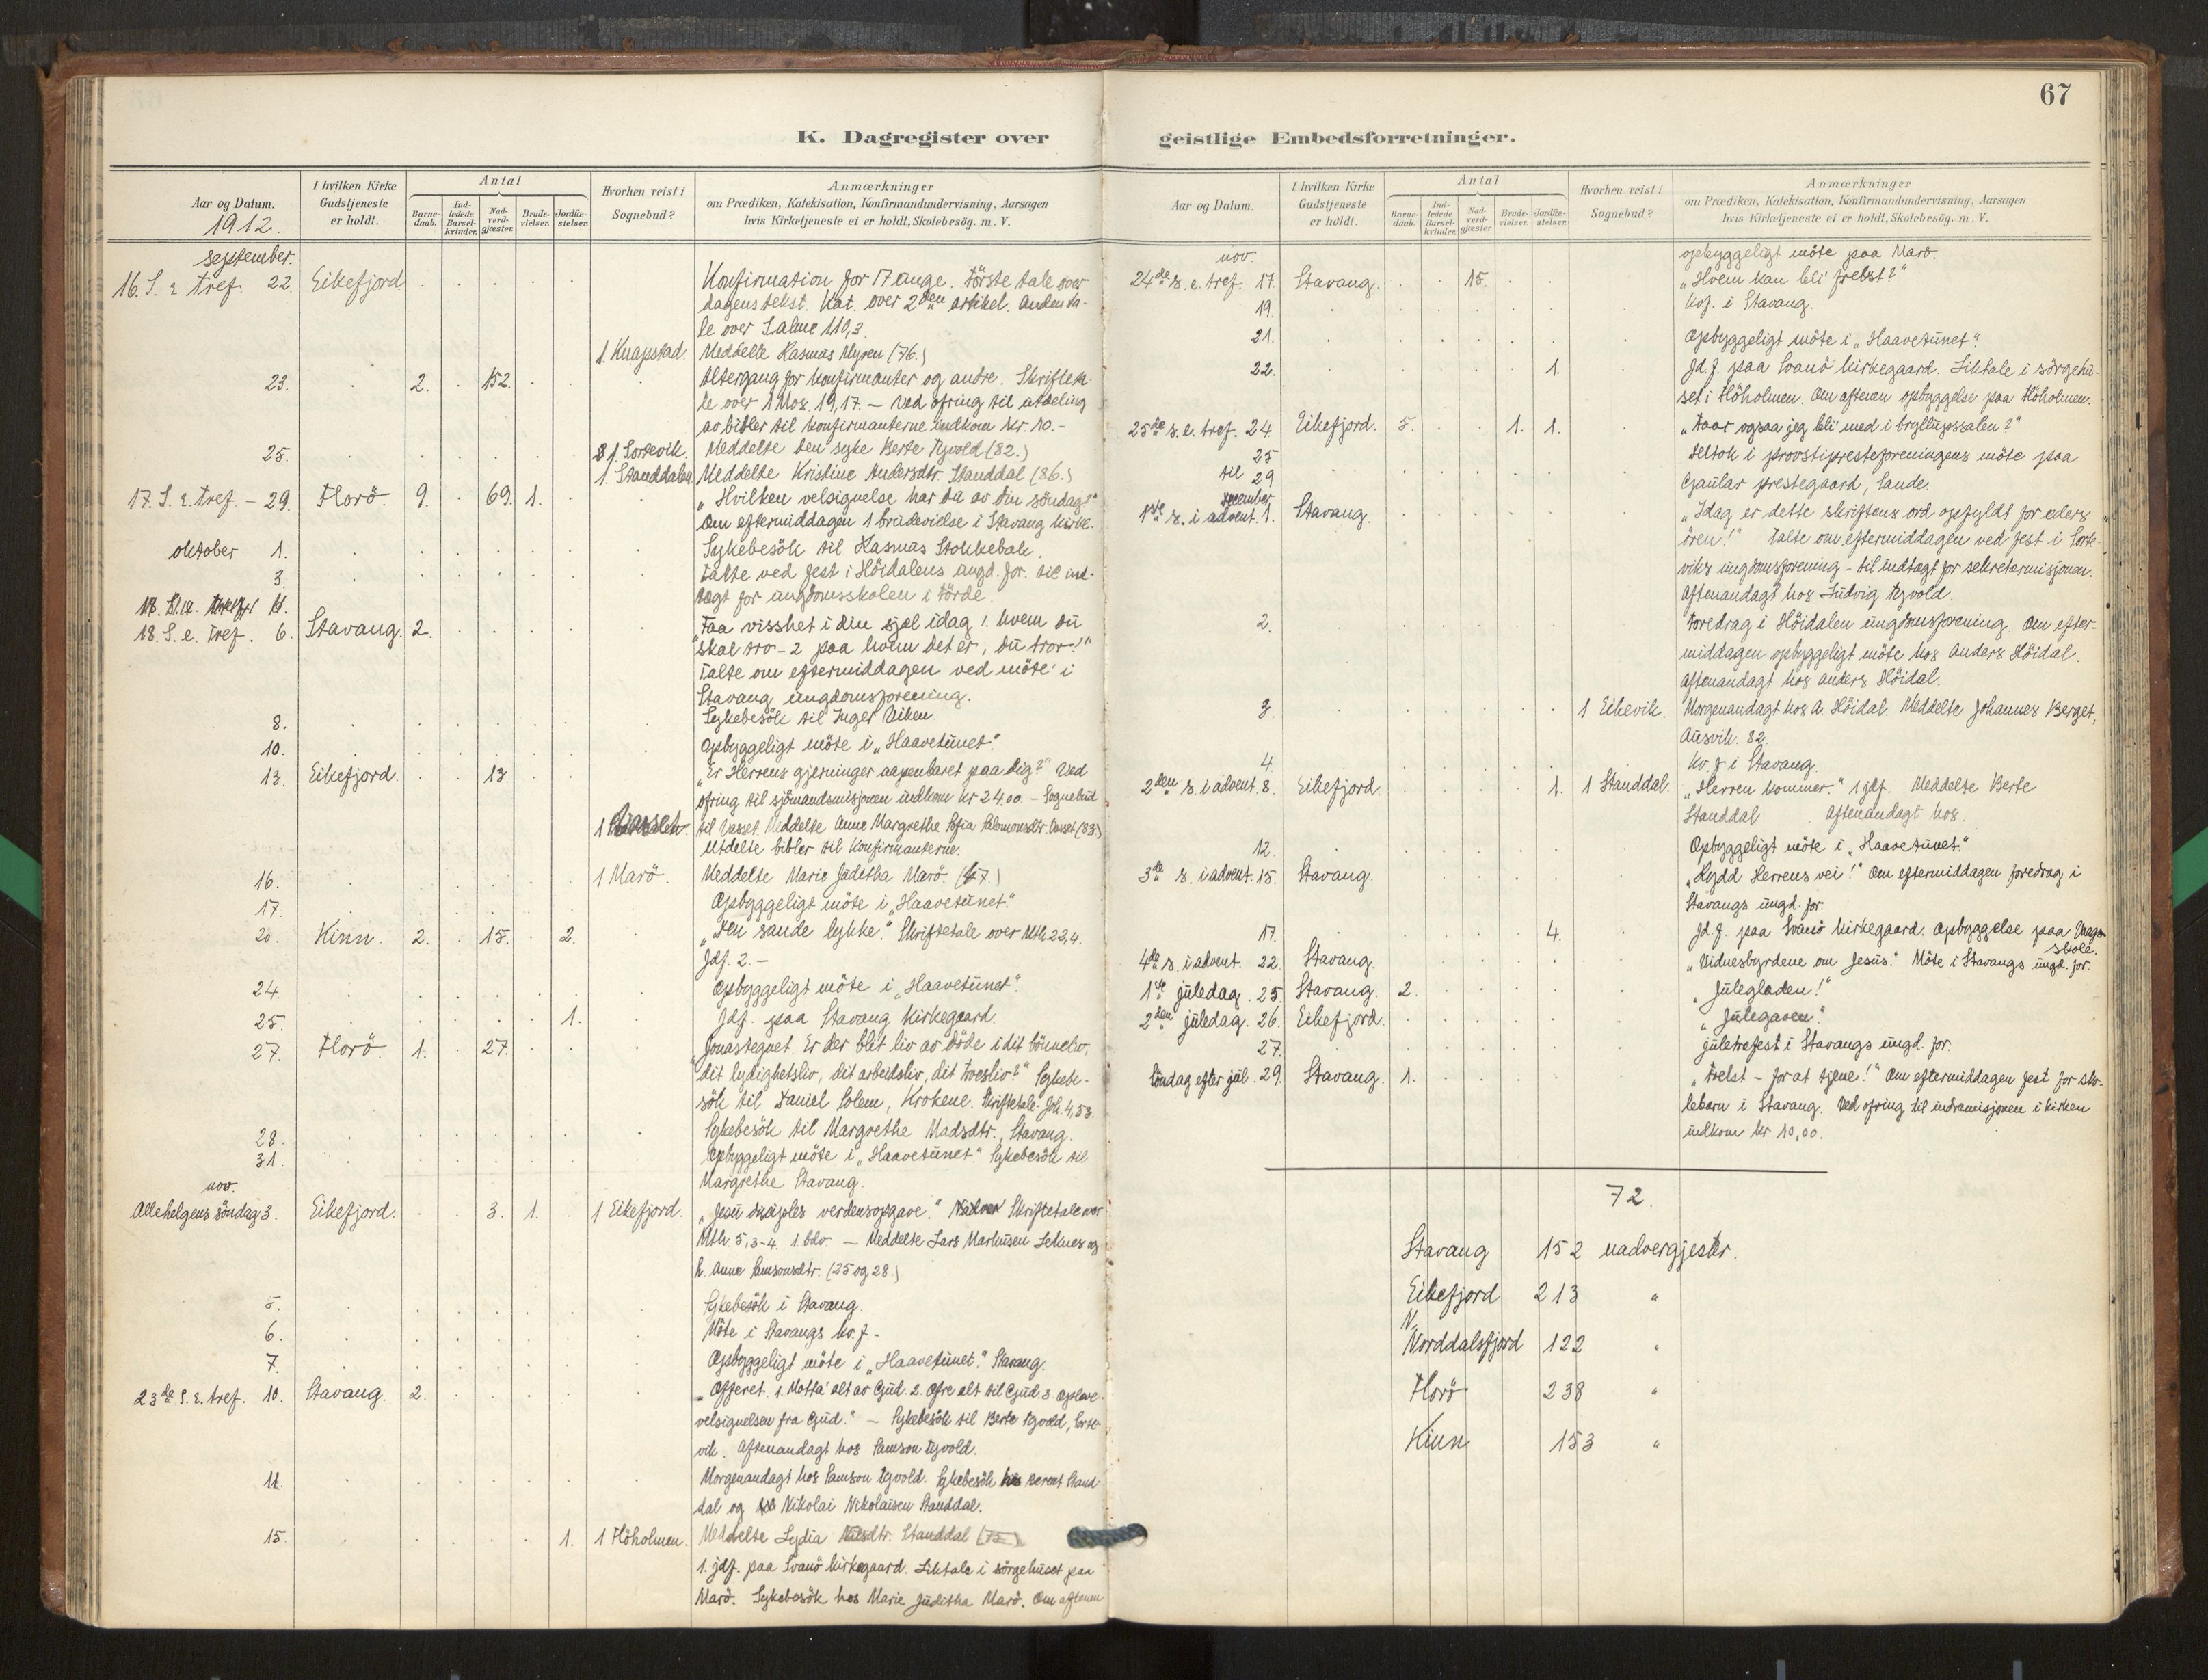 67
K. Dagregister over geistlige Embedsforretninger.
Aar og Datum.
1912.
I hvilken Kirke Gudstjeneste er holdt.
Antal
Barne-daab.
Ind-ledede Barsel-kvinder.
Nad-verd-gjæster.
Brude-vielser.
Jordfæ-stelser.
Hvorhen reist i Sognebud?
Anmærkninger
om Prædiken, Katekisation, Konfirmandundervisning, Aarsagen
hvis Kirketjeneste ei er holdt, Skolebesög. m. V.
september.
16. S. e. tref. 22. Eikefjord . . . . . Konfirmation for 17 unge. Förste tale over
dagens tekst. Kat. over 2den artikel. Anden ta-
le over Salme 119,3.
1 Knapstad. Meddelte Rasmus Myren (76.)
23. . 2. . 152. . . Altergang for konfirmanter og andre. Skrifteta-
le over 1 Mos. 19,17. – Ved ofring til utdeling
av bibler til konfirmanterne indkom kr. 10.-
25. 1 Sortevik. Meddelte den syke Berte Tyvold (82.)
1 Standdalen Meddelte Kristine Andersdtr. Standdal (86.)
17. S. e. tref – 29. Florö. 9. . 69. 1. . „Hvilken velsignelse har du av din söndag?"
Om eftermiddagen 1 brudevielse i Stavang kirke.
oktober 1. Sykebesök til Rasmus Stokkebak.
3. Talte ved fest i Höidalens ungd. for. til ind-
tægt for ungdomsskolen i Förde.
18. S. e. tref. 6. Stavang. 2. . . . . „Faa visshet i din sjæl idag 1. hvem du
skal tro – 2 paa hvem det er, du tror!"
Talte om eftermiddagen ved möte i
Stavang ungdomsforening.
8. Sykebesök til Inger Aiken.
10. Opbyggeligt möte i „Haavetunet".
13. Eikefjord. . . 13. . . „Er Herrens gjerninger aapenbaret paa dig?" Ved
ofring til sjömandsmisjonen indkom kr 24.00. – Sognebud
1 til Vasset. Meddelte Anne Margrethe Sofia Salomonsdtr. Vasset (83)
Utdelte bibler til konfirmanterne.
16. 1 Marö. Meddelte Marie Juditha Marö.
17. Opbyggeligt möte i „Haavetunet."
20. Kinn. 2. . 15. . 2. „Den sande lykke." Skriftetale over Mth 22,4.
Jdf. 2. –
24. Opbyggeligt möte i „Haavetunet".
25. 1. Jdf. paa Stavang kirkegaard.
27. Florö. 1. . 27. . . „Jonastegnet. Er der blit liv av döde i dit bönneliv,
dit lydighetsliv, dit arbeidsliv, dit troesliv?" Sykebe-
sök til Daniel Solem, Krokene. Skriftetale Joh. 4,53.
28. Sykebesök til Margrethe Madsdtr., Stavang.
31. Opbyggeligt möte i „Haavetunet." Sykebesök til
Margrethe Stavang.
nov.
Allehelgens söndag 3. Eikefjord. . . 3. 1. . 1 Eikefjord. „Jesu disciples verdensopgave." Skriftetale over
Mth. 5,3-4. 1. bdv. – Meddelte Lars Markusen Setnes og
h. Anne Samsonsdtr. (25 og 28.)
5. Sykebesök i Stavang.
6. Möte i Stavangs kv. f. –
7. Opbyggeligt möte i „Haavetunet." Stavang.
23de S. e. tref. 10. Stavang. 2. . . . . „Offeret. 1. Motta alt av Gud. 2. Ofre alt til Gud. 3 Opleve
velsignelsen fra Gud." – Sykebesök til Berte Tyvold, Sorte-
vik. Aftenandagt hos Samson Tyvold.
11. Morgenandagt hos Samson Tyvold. Sykebesök hos Berent Stand-
dal og til Nikolai Nikolaisen Standdal.
15. 1. 1 Höholmen. Meddelte Lydia Nilsdtr. Standdal
1. jdf. paa Svanö kirkegaard. Liktale i sörgehuset paa
Marö. Sykebesök hos Marie Juditha Marö. Om aftenen
Aar og Datum.
I hvilken Kirke Gudstjeneste er holdt.
Antal
Barne-daab.
Ind-ledede Barsel-kvinder.
Nad-verd-gjæster.
Brude-vielser.
Jordfæ-stelser.
Hvorhen reist i Sognebud?
Anmærkninger
om Prædiken, Katekisation, Konfirmandundervisning, Aarsagen
hvis Kirketjeneste ei er holdt, Skolebesög. m. V.
nov. opbyggeligt möte paa Marö.
24de s. e. tref. 17. Stavang. . . 15. . . „Hvem kan bli frelst?"
19. Kvf. i Stavang.
21. Opbyggeligt möte i „Haavetunet".
22. 1. Jd.f. paa Svanö kirkegaard. Liktale i sörgehu-
set i Höholmen. Om aftenen opbyggelse paa Höholmen.
25de s. e. tref. 24. Eikefjord. 5. . . 1. 1. „Faar ogsaa jeg bli med i bryllupssalen?"
25 til 29 Deltok i provstiprestforeningens möte paa
Gaular prestegaard, Sande.
december
1ste s. i advent. 1. Stavang. „Idag er dette skriftens ord opfyldt for eders
ören!" Talte om eftermiddagen ved fest i Sorte-
viks ungdomsforening – til indtægt for sekretærmisjonen.
Aftenandagt hos Ludvig Tyvold.
2. Foredrag i Höidalen ungdomsforening. Om efter-
middagen opbyggeligt möte hos Anders Höidal.
Aftenandagt hos Anders Höidal.
3. 1 Eikevik. Morgenandagt hos A. Höidal. Meddelte Johannes Berget,
Ausvik. 82.
4. Kv. f. i Stavang.
2den s. i advent. 8. Eikefjord. . . . . 1. 1 Standdal. „Herren kommer." 1 jdf. Meddelte Berte
Standdal . Aftenandagt hos.
12. Opbyggeligt möte i „Haavetunet."
3de s. i advent. 15. Stavang. „Rydd Herrens vei!" Om eftermiddagen foredrag i
Stavangs ungd. for.
17. 4. Jd.f. paa Svanö kirkegaard. Opbyggelse paa Vaags
skole.
4de s. i advent. 22. Stavang. „Vidnesbyrdene om Jesus." Möte i Stavangs ungd. for.
1ste juledag. 25. Stavang. 2. „Juleglæden!"
2den juledag. 26. Eikefjord. „Julegaven."
27. Juletrefest i Stavangs ungd. for.
Söndag efter jul. 29. Stavang. 1. „Frelst – for at tjene!" Om eftermiddagen fest for sko-
lebarn i Stavang. Ved ofring til indremisjonen i kirken
indkom kr 10,00.
72.
Stavang 152 nadvergjester.
Eikefjord 213 "
N.
Norddalsfjord 122 "
Florö 238 "
Kinn 153 "